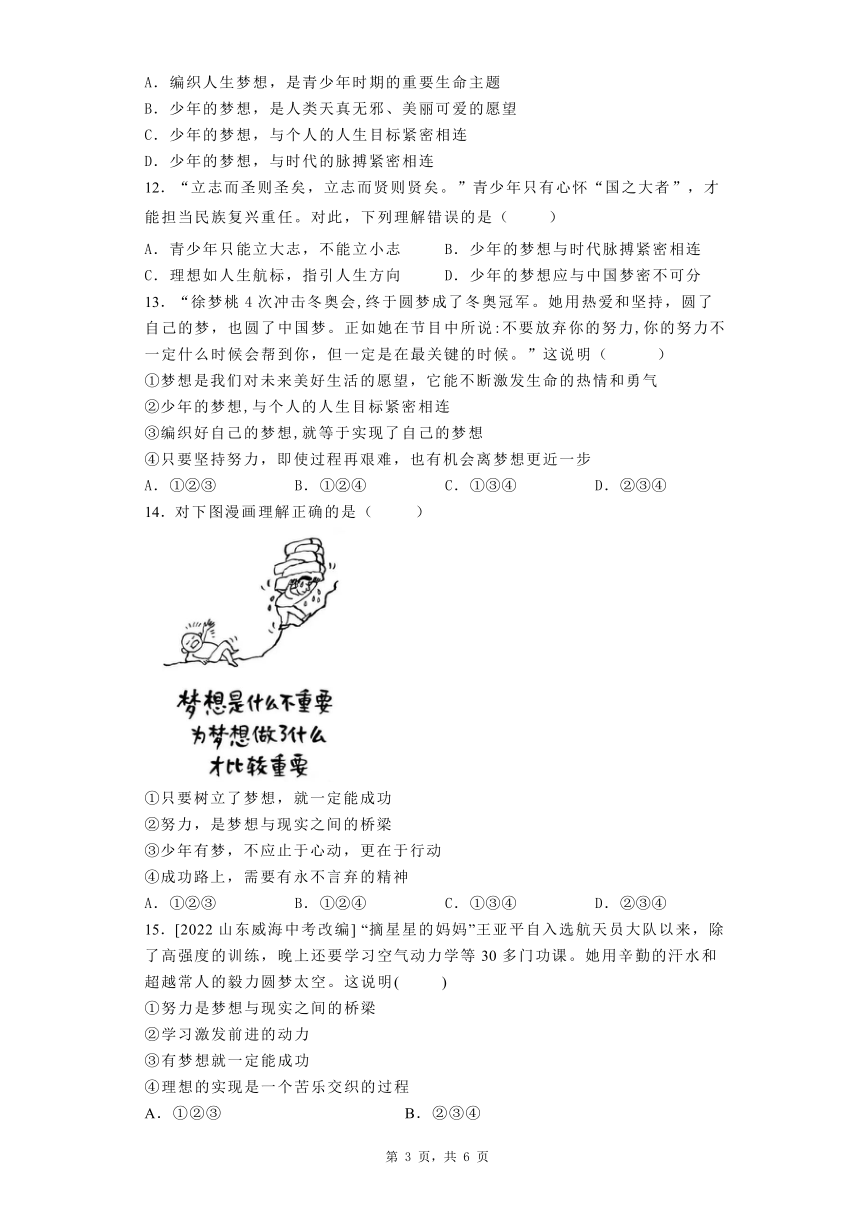 A．编织人生梦想，是青少年时期的重要生命主题
B．少年的梦想，是人类天真无邪、美丽可爱的愿望
C．少年的梦想，与个人的人生目标紧密相连
D．少年的梦想，与时代的脉搏紧密相连
12．“立志而圣则圣矣，立志而贤则贤矣。”青少年只有心怀“国之大者”，才
能担当民族复兴重任。对此，下列理解错误的是（　　）
A．青少年只能立大志，不能立小志　　B．少年的梦想与时代脉搏紧密相连
C．理想如人生航标，指引人生方向　　D．少年的梦想应与中国梦密不可分
13．“徐梦桃 4 次冲击冬奥会,终于圆梦成了冬奥冠军。她用热爱和坚持，圆了
自己的梦，也圆了中国梦。正如她在节目中所说:不要放弃你的努力,你的努力不
一定什么时候会帮到你，但一定是在最关键的时候。”这说明（　　）
①梦想是我们对未来美好生活的愿望，它能不断激发生命的热情和勇气
②少年的梦想,与个人的人生目标紧密相连
③编织好自己的梦想,就等于实现了自己的梦想
④只要坚持努力，即使过程再艰难，也有机会离梦想更近一步
A．①②③　　B．①②④　　C．①③④　　D．②③④
14．对下图漫画理解正确的是（　　）
梦想是什么不重要
为梦想做了什么
才比较重要
①只要树立了梦想，就一定能成功
②努力，是梦想与现实之间的桥梁
③少年有梦，不应止于心动，更在于行动
④成功路上，需要有永不言弃的精神
A．①②③　　B．①②④　　C．①③④　　D．②③④
15．[2022 山东威海中考改编] “摘星星的妈妈”王亚平自入选航天员大队以来，除
了高强度的训练，晚上还要学习空气动力学等 30 多门功课。她用辛勤的汗水和
超越常人的毅力圆梦太空。这说明(　　)
①努力是梦想与现实之间的桥梁
②学习激发前进的动力
③有梦想就一定能成功
④理想的实现是一个苦乐交织的过程
A．①②③　　B．②③④
第 3 页，共 6 页